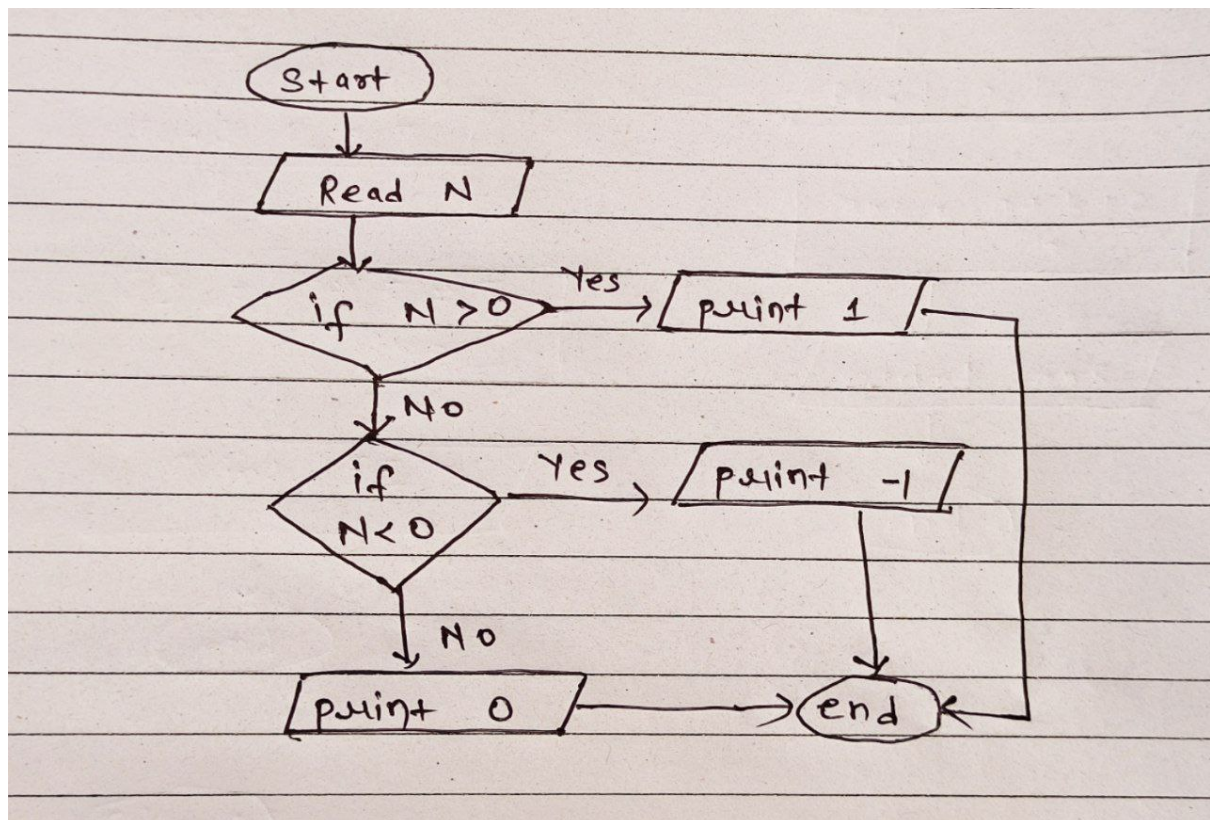 Start
Read N
if N>0
Yes
print 1
NO
if
N<0
Yes
print -1
NO
print 0
end